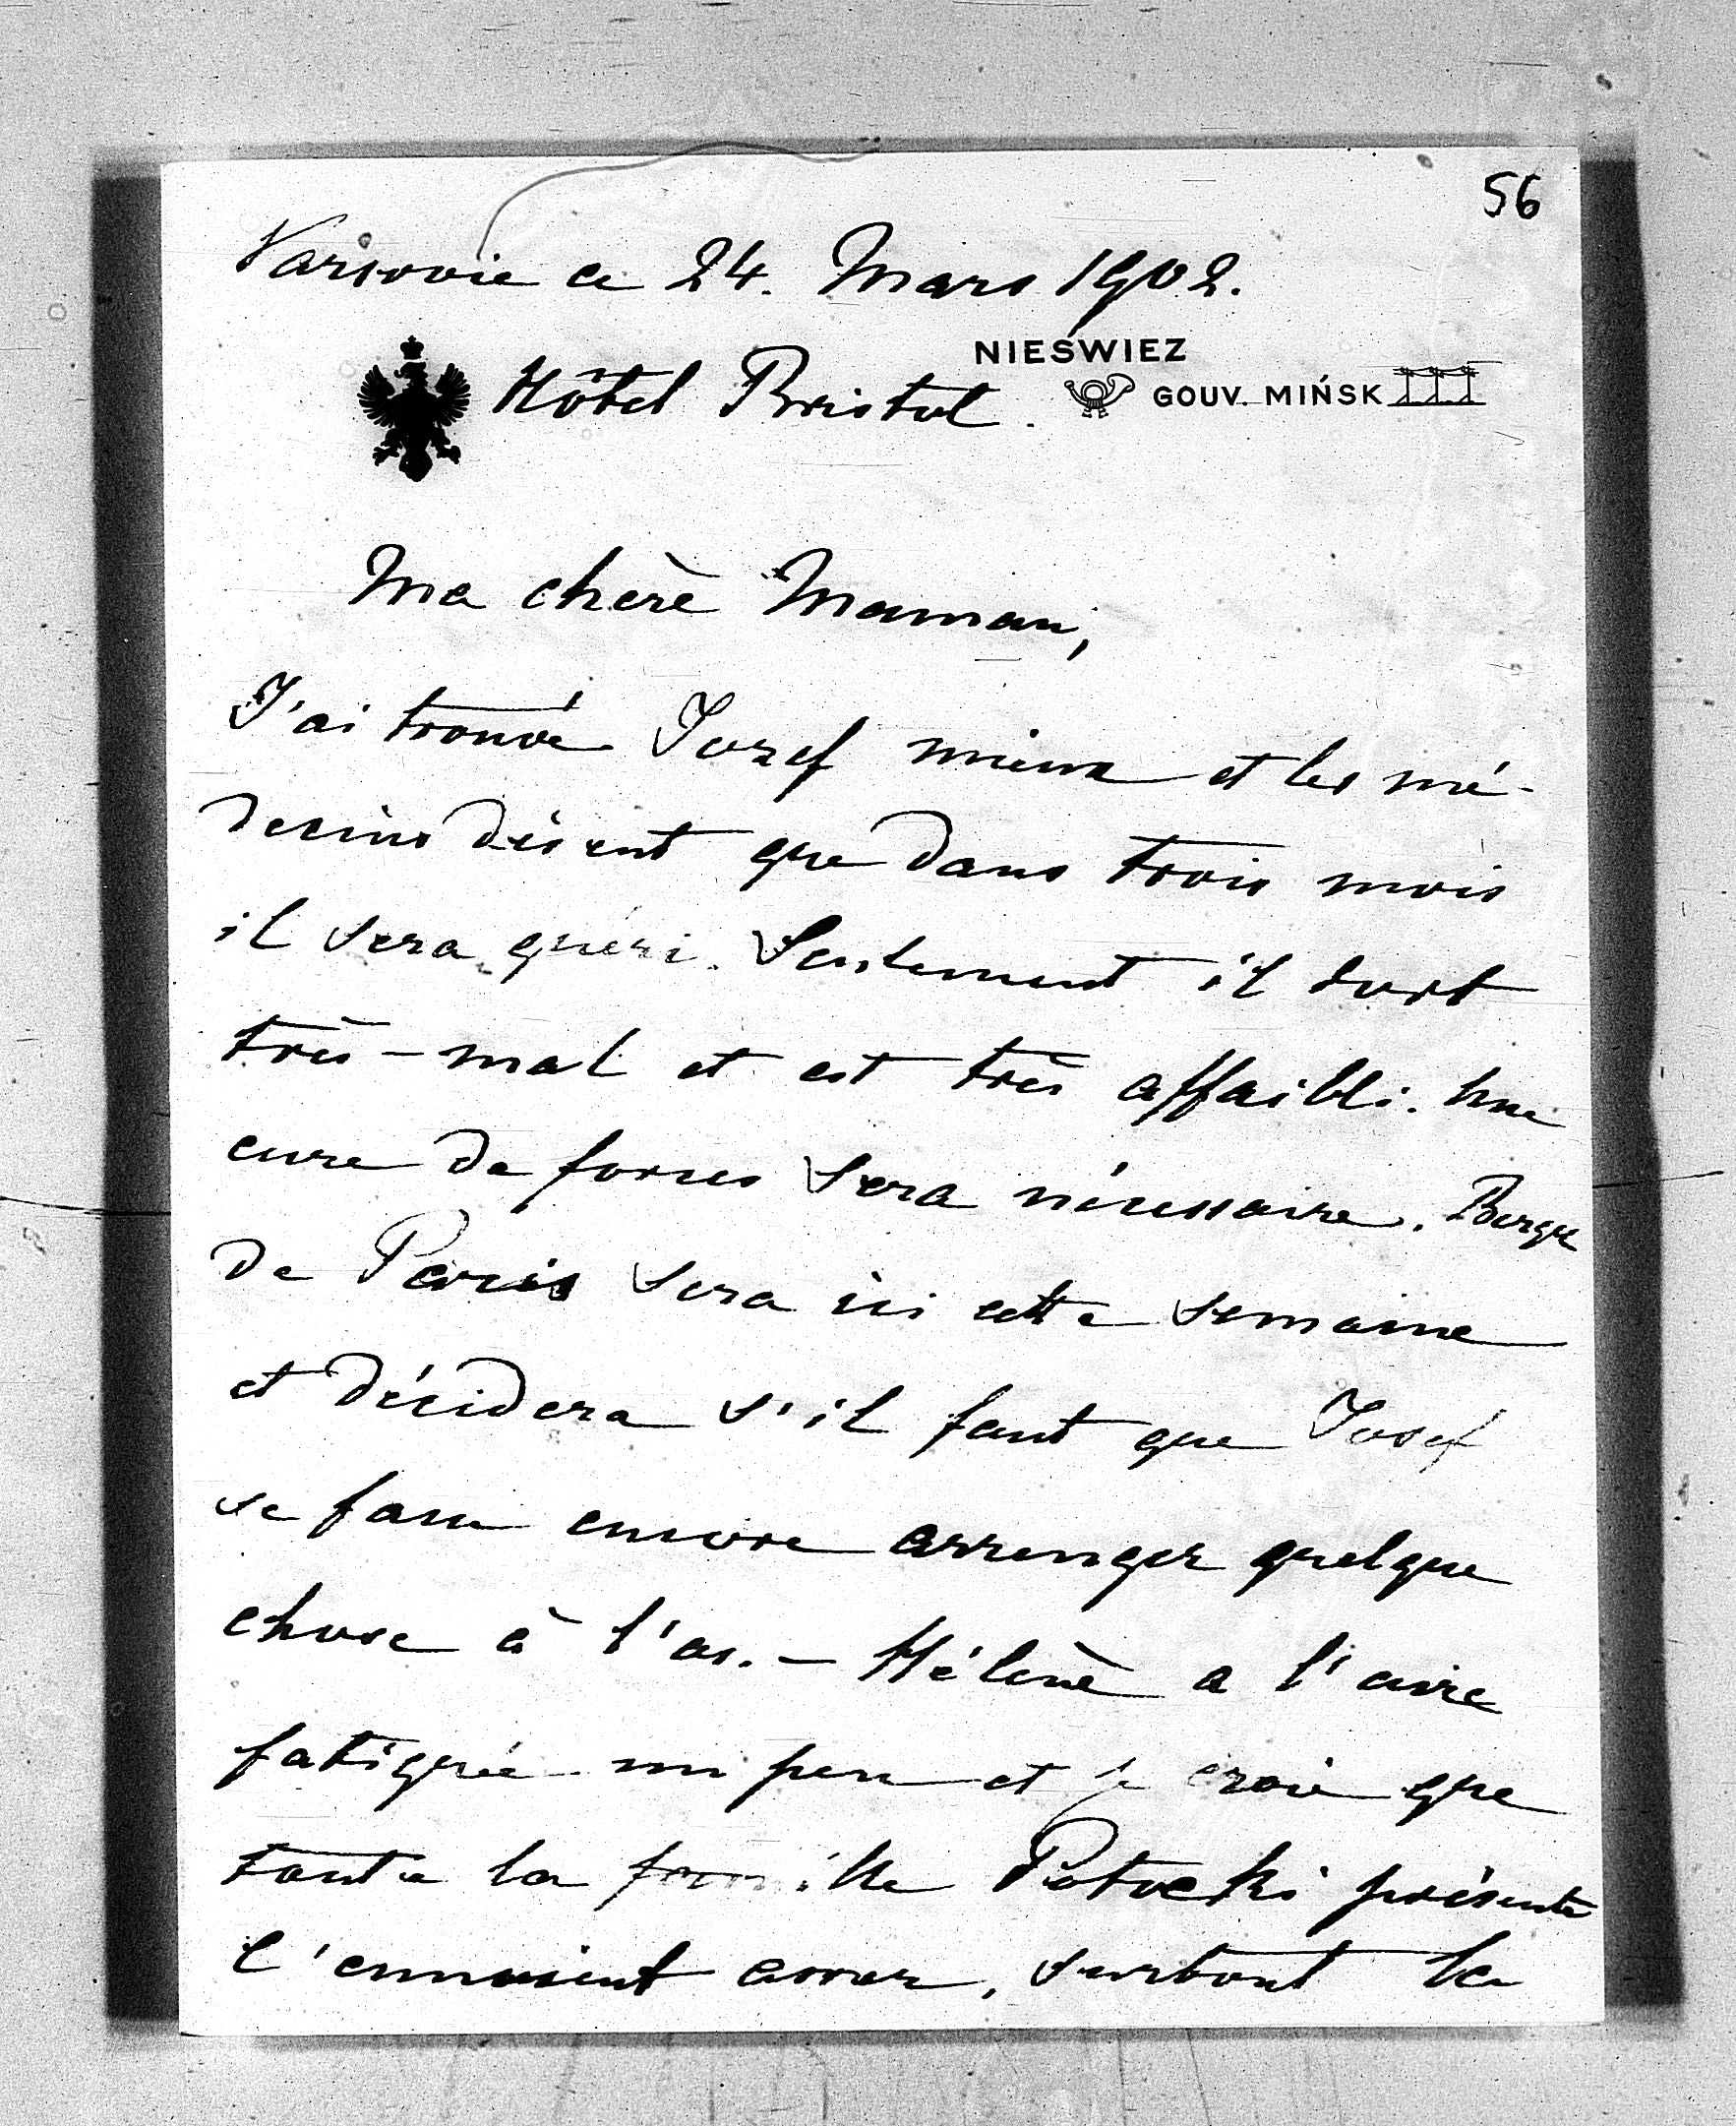 56
Varsovie ce 24. Mars 1902.
NIEŚWIEZ
Hôtel Bristol.
GOUV. MIŃSK
Ma chère Maman,
J'ai trouvé Josef mieux et les mé-
decins disent que dans trois mois
il sera guéri. Seulement il dort
très-mal et est très affaibli. Une
cure de forces sera nécessaire. Berger
de Paris sera ici cette semaine
et décidera s'il faut que Josef
se fasse encore arrenger quelque
chose à l'os. – Hélène a l'aire
fatiguée un peu et je crois que
toute la famille Potocki présente
l'ennuient assez, surtout la